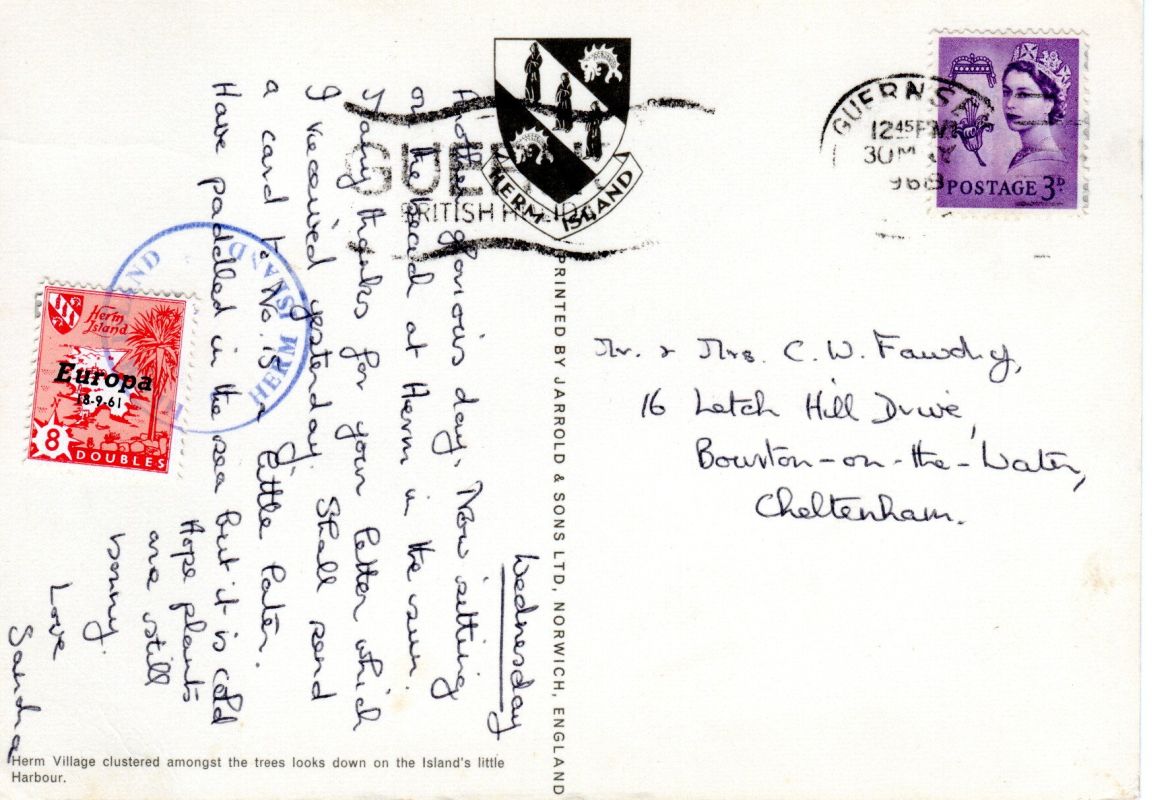 Wednesday
Another glorious day. Now sitting
on the beach at Herm in the sun.
Many thanks for your letter which
I received yesterday. Shall send
a card to No. 15 a little later.
Have paddled in the sea but it is cold
Hope plants
are still
bonny.
Love
Sandra
HERM ISLAND
GUERNSEY
12 45 PM
30
968
POSTAGE 3D
BRITISH
HERM ISLAND
Herm
Island
Europa
18-9-61
8
DOUBLES
PRINTED BY JARROLD & SONS LTD, NORWICH, ENGLAND
Mr. & Mrs. C. W. Fawdry,
16 Letch Hill Drive,
Bourton-on-the-Water,
Cheltenham.
Herm Village clustered amongst the trees looks down on the Island's little
Harbour.